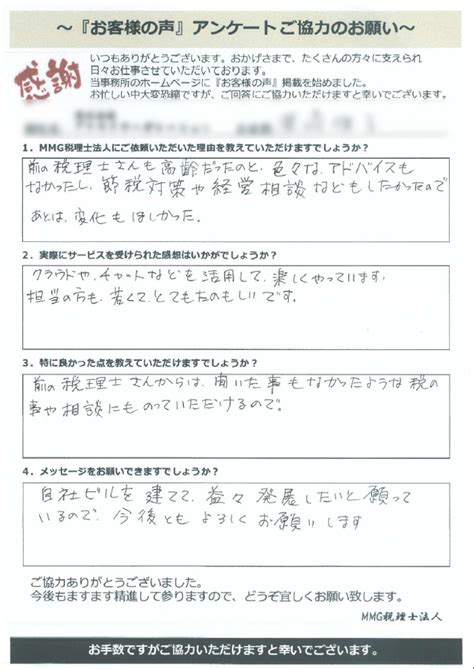 ～『お客様の声』アンケートご協力のお願い～
感謝
いつもありがとうございます。おかげさまで、たくさんの方々に支えられ
日々お仕事させていただいております。
当事務所のホームページに『お客様の声』掲載を始めました。
お忙しい中大変恐縮ですが、ご回答にご協力いただけますと幸いでございます。
1．MMG税理士法人にご依頼いただいた理由を教えていただけますでしょうか？
前の税理士さんも高齢だったのと、色々な、アドバイスも
なかったし、節税対策や経営相談などもしたかったので
あとは、変化もほしかった。
2．実際にサービスを受けられた感想はいかがでしょうか？
クラウドや、チャットなどを活用して、楽しくやっています。
担当の方も、若くて、とてもたのもしいです。
3．特に良かった点を教えていただけますでしょうか？
前の税理士さんからは、聞いた事もなかったような税の
事や相談にものっていただけるので。
4．メッセージをお願いできますでしょうか？
自社ビルを建てて、益々発展したいと願って
いるので、今後ともよろしくお願いします
ご協力ありがとうございました。
今後もますます精進して参りますので、どうぞ宜しくお願い致します。
MMG税理士法人
お手数ですがご協力いただけますと幸いでございます。